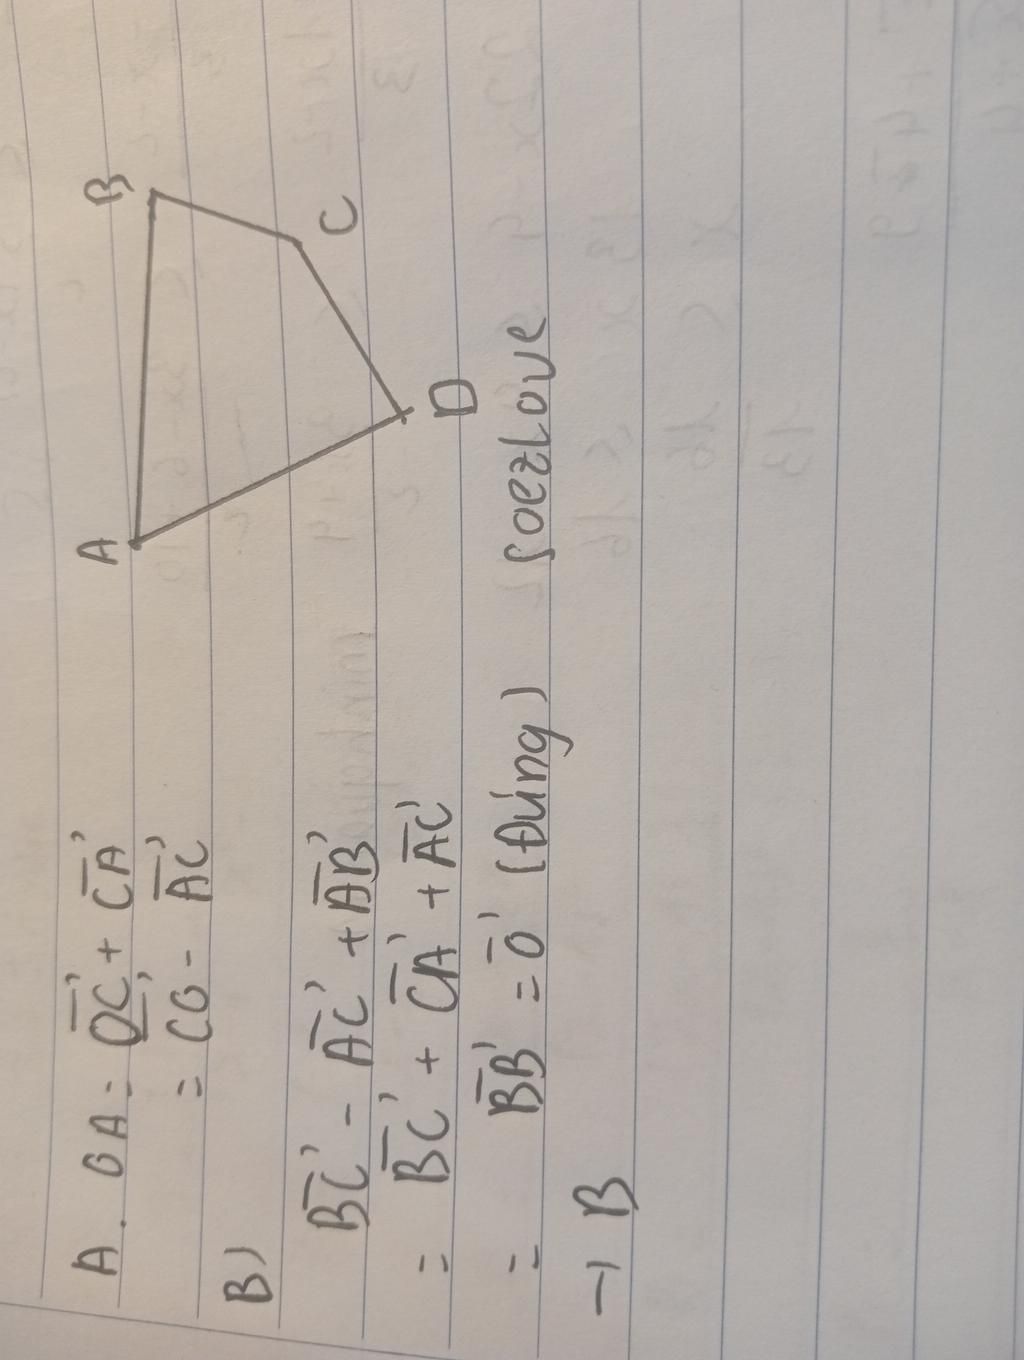 A. OA = OC + CA
= CO - AC
B)
BC - AC + AB
= BC + CA + AC
= BB = O (Đúng)
→ B
A
B
C
D
soezlove